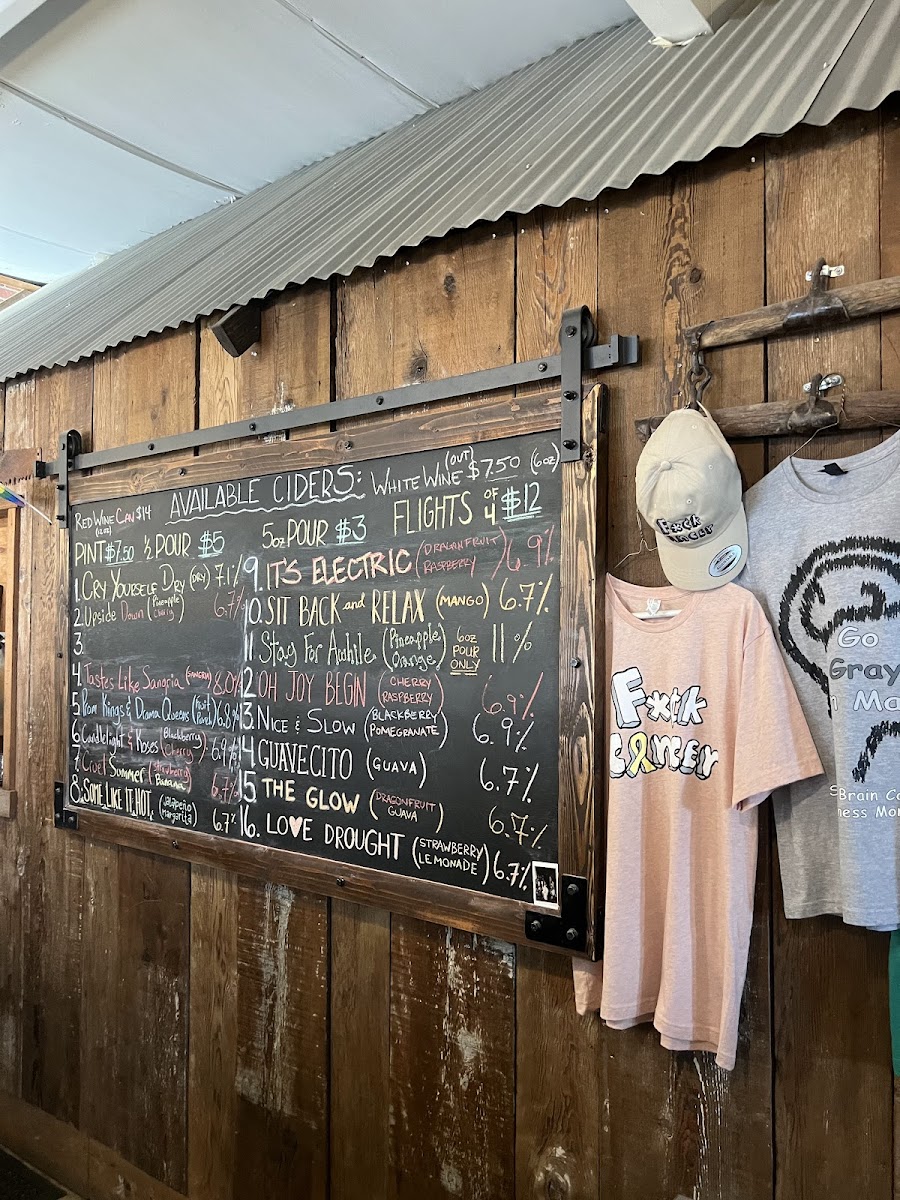 AVAILABLE CIDERS:
WHITE WINE (OUT) $7.50 (6oz)
RED WINE CAN $14
PINT $7.50 ½ POUR $5
5oz POUR $3
FLIGHTS OF 4 $12
1. CRY YOURSELF DRY (DRY) 7.1%
2. Upside Down (Pineapple Cherry) 6.7%
3.
4. Tastes Like Sangria (SANGRIA) 8.0%
5. Prom Kings & Drama Queens (Fruit Punch) 6.8%
6. Candlelight & Roses (Blackberry Cherry) 6.9%
7. Cruel Summer (Strawberry Banana)
8. SOME LIKE IT HOT. (Jalapeño Margarita) 6.7%
9. IT'S ELECTRIC (DRAGONFRUIT RASPBERRY) 6.9%
10. SIT BACK and RELAX (MANGO) 6.7%
11 Stay For Awhile (Pineapple Orange) 6oz POUR ONLY 11%
12 OH JOY BEGIN (CHERRY RASPBERRY) 6.9%
13. NICE & SLOW (BLACKBERRY POMEGRANATE) 6.9%
14 GUAVECITO (GUAVA) 6.7%
15. THE GLOW (DRAGONFRUIT GUAVA) 6.7%
16. LOVE DROUGHT (STRAWBERRY LEMONADE) 6.7%
F*ck
Cancer
F*ck
Cancer
Go
Gray
Ma
Brain Ca
ness Mon